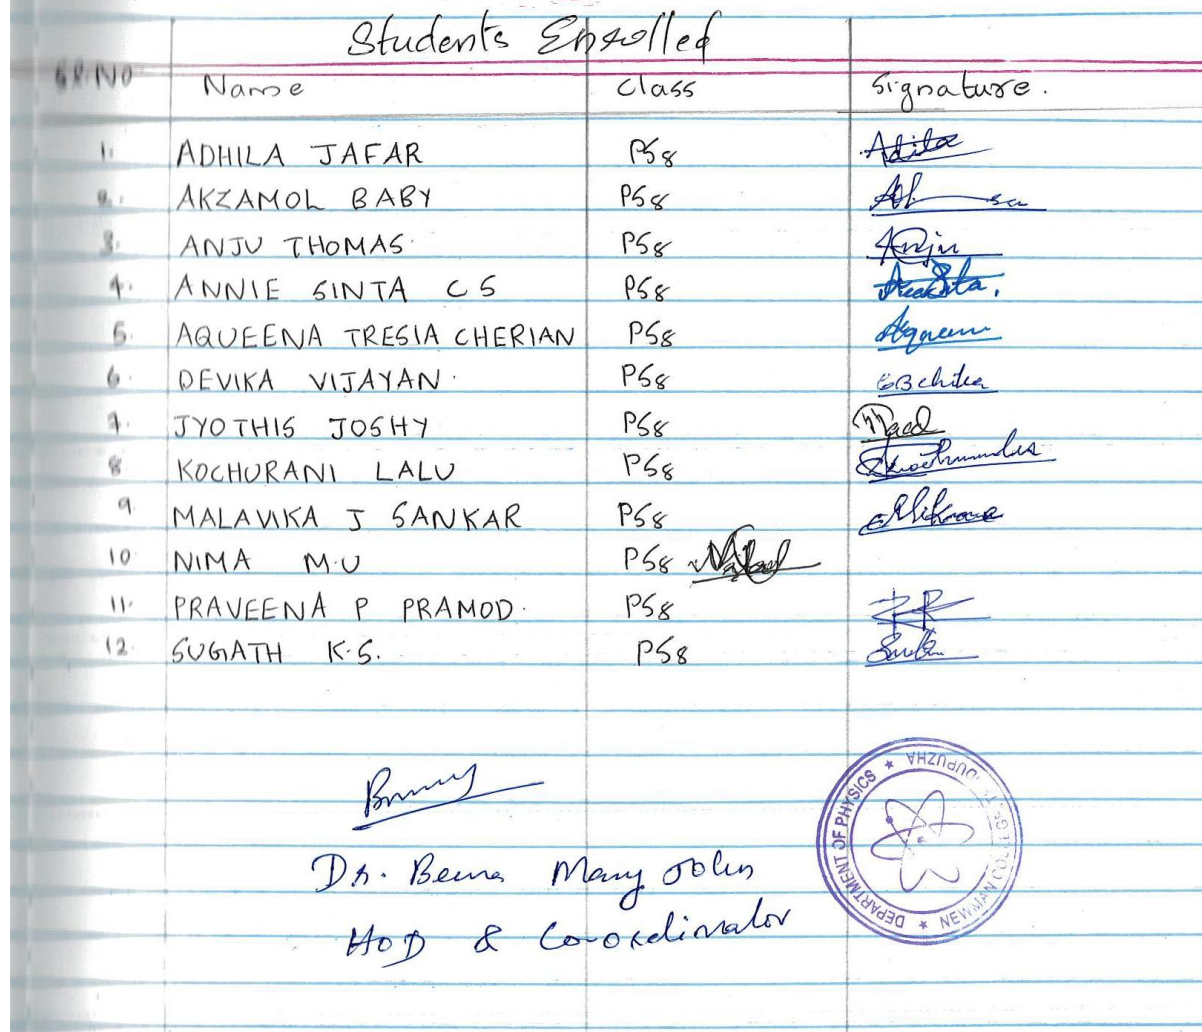 Students Enrolled
SR.NO Name class signature.
1. ADHILA JAFAR PS8 Adila
2. AKZAMOL BABY PS8
3. ANJU THOMAS. PS8 Anju
4. ANNIE SINTA C S PS8
5. AQUEENA TRESIA CHERIAN PS8
6. DEVIKA VIJAYAN. PS8
7. JYOTHIS JOSHY PS8
8 KOCHURANI LALU PS8
9. MALAVIKA J SANKAR PS8
10 NIMA M.U PS8
11. PRAVEENA P PRAMOD. PS8
12. SUGATH K.S. PS8
Dr. Beena Mary John
HOD & Co-ordinator
DEPARTMENT OF PHYSICS ★ NEWMAN COLLEGE, THODUPUZHA ★